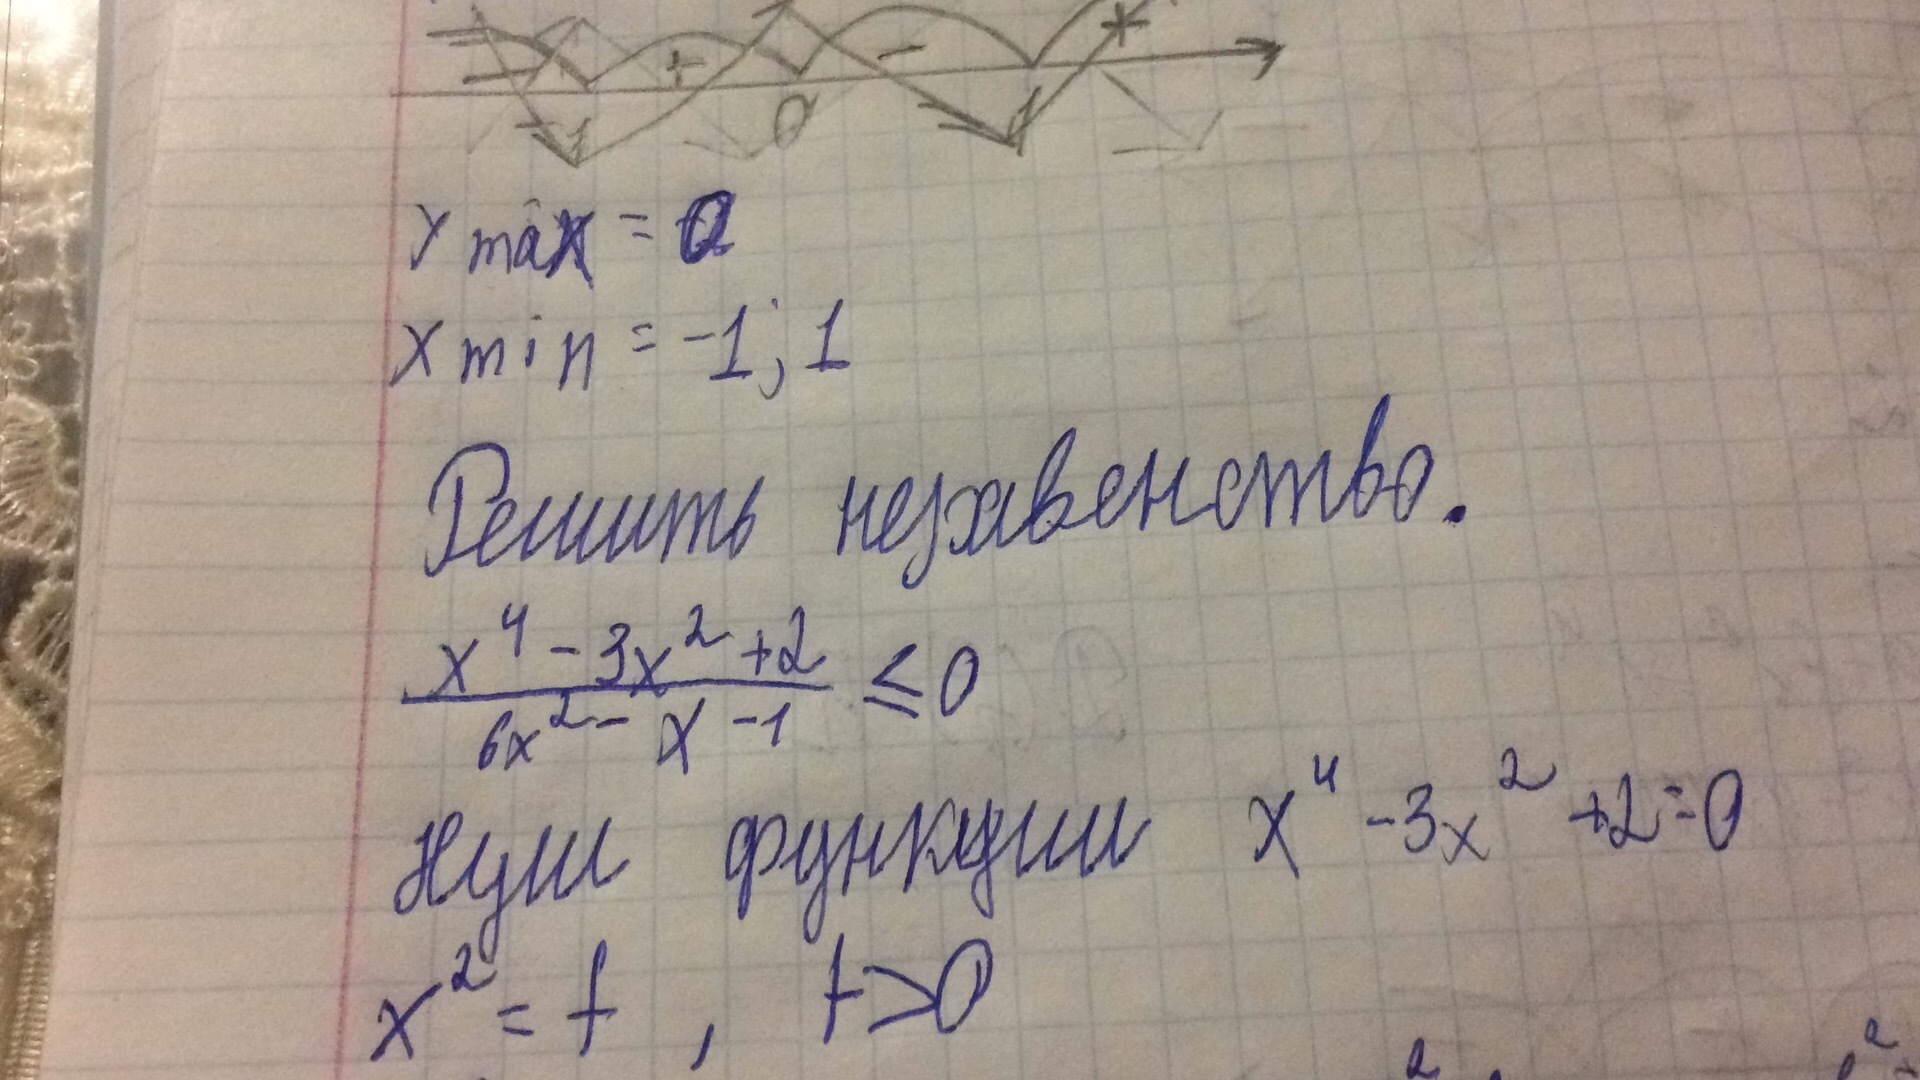 + - +
-1 0 1
x max = 0
x min = -1; 1
Решить неравенство.
x⁴ - 3x² + 2
6x² - x - 1
≤ 0
Нули функции x⁴ - 3x² + 2 = 0
x² = t, t > 0